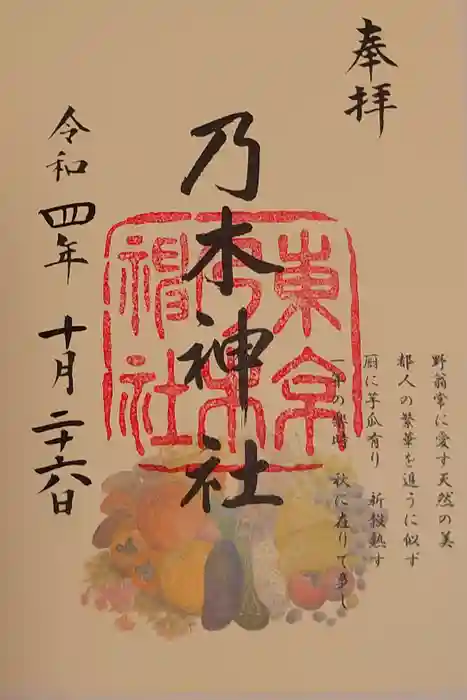 奉拝
野翁常に愛す天然の美
都人の繁華を追うに似ず
厨に芋瓜有り 新穀熟す
一年の楽時 秋に在りて多し
乃木神社
東京乃木神社
令和四年 十月二十六日